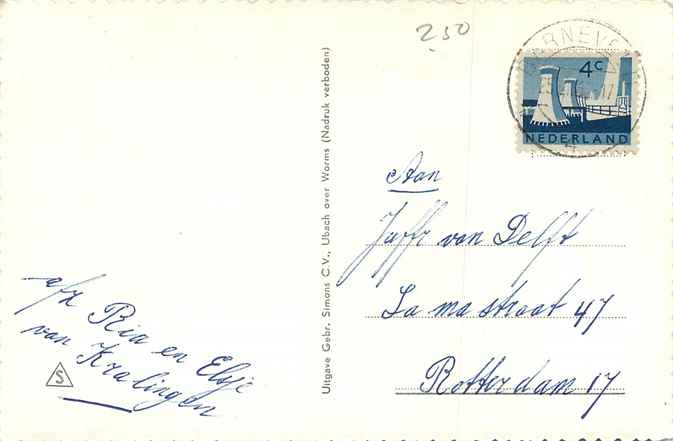 2,50
BARNEVELD
4c
NEDERLAND
Uitgave Gebr. Simons C.V., Ubach over Worms (Nadruk verboden)
Aan
Juffr van Delft
La ma straat 47
Rotterdam 17
afz Ria en Elsje
van Kralingen
S